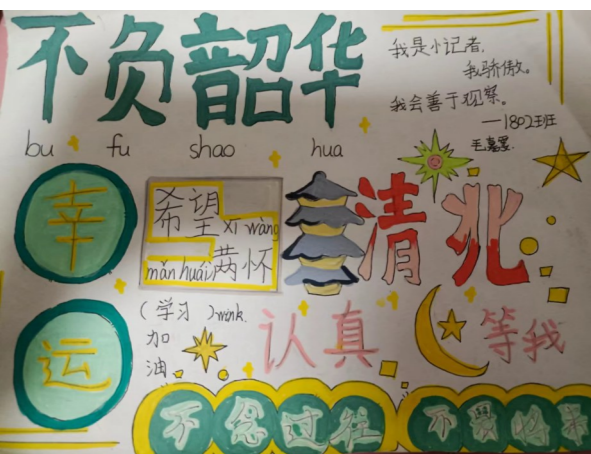 不负韶华
bu fu shao hua
我是小记者,
我骄傲。
我会善于观察。
——1802班
幸
希望
xī wàng
mǎn huái 满怀
清北
运
(学习)mink.
加
油
认真
等我
不念过往
不畏将来